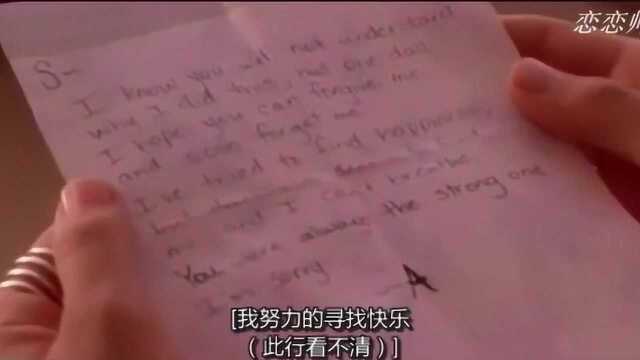 恋恋
S-
I know you will not understand
why I did this, but one day
I hope you can forgive me
and even forget me
I've tried to find happiness
me and I can't breathe
You were always the strong one
I'm sorry
-A
[我努力的寻找快乐
（此行看不清）]